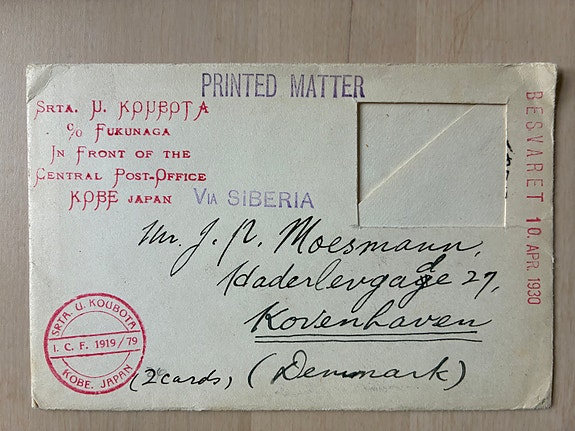 PRINTED MATTER
SRTA. U. KOUBOTA
c/o FUKUNAGA
IN FRONT OF THE
CENTRAL POST-OFFICE
KOBE JAPAN
VIA SIBERIA
BESVARET 10. APR. 1930
Mr. J. P. Moesmann,
Haderlevgade 27,
Kovenhaven
(2cards, (Denmark)
SRTA. U. KOUBOTA
I. C. F. 1919/79
KOBE. JAPAN